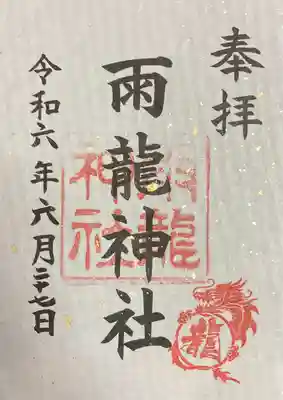 奉拝
雨龍神社
雨龍神社
龍
令和六年六月二十七日